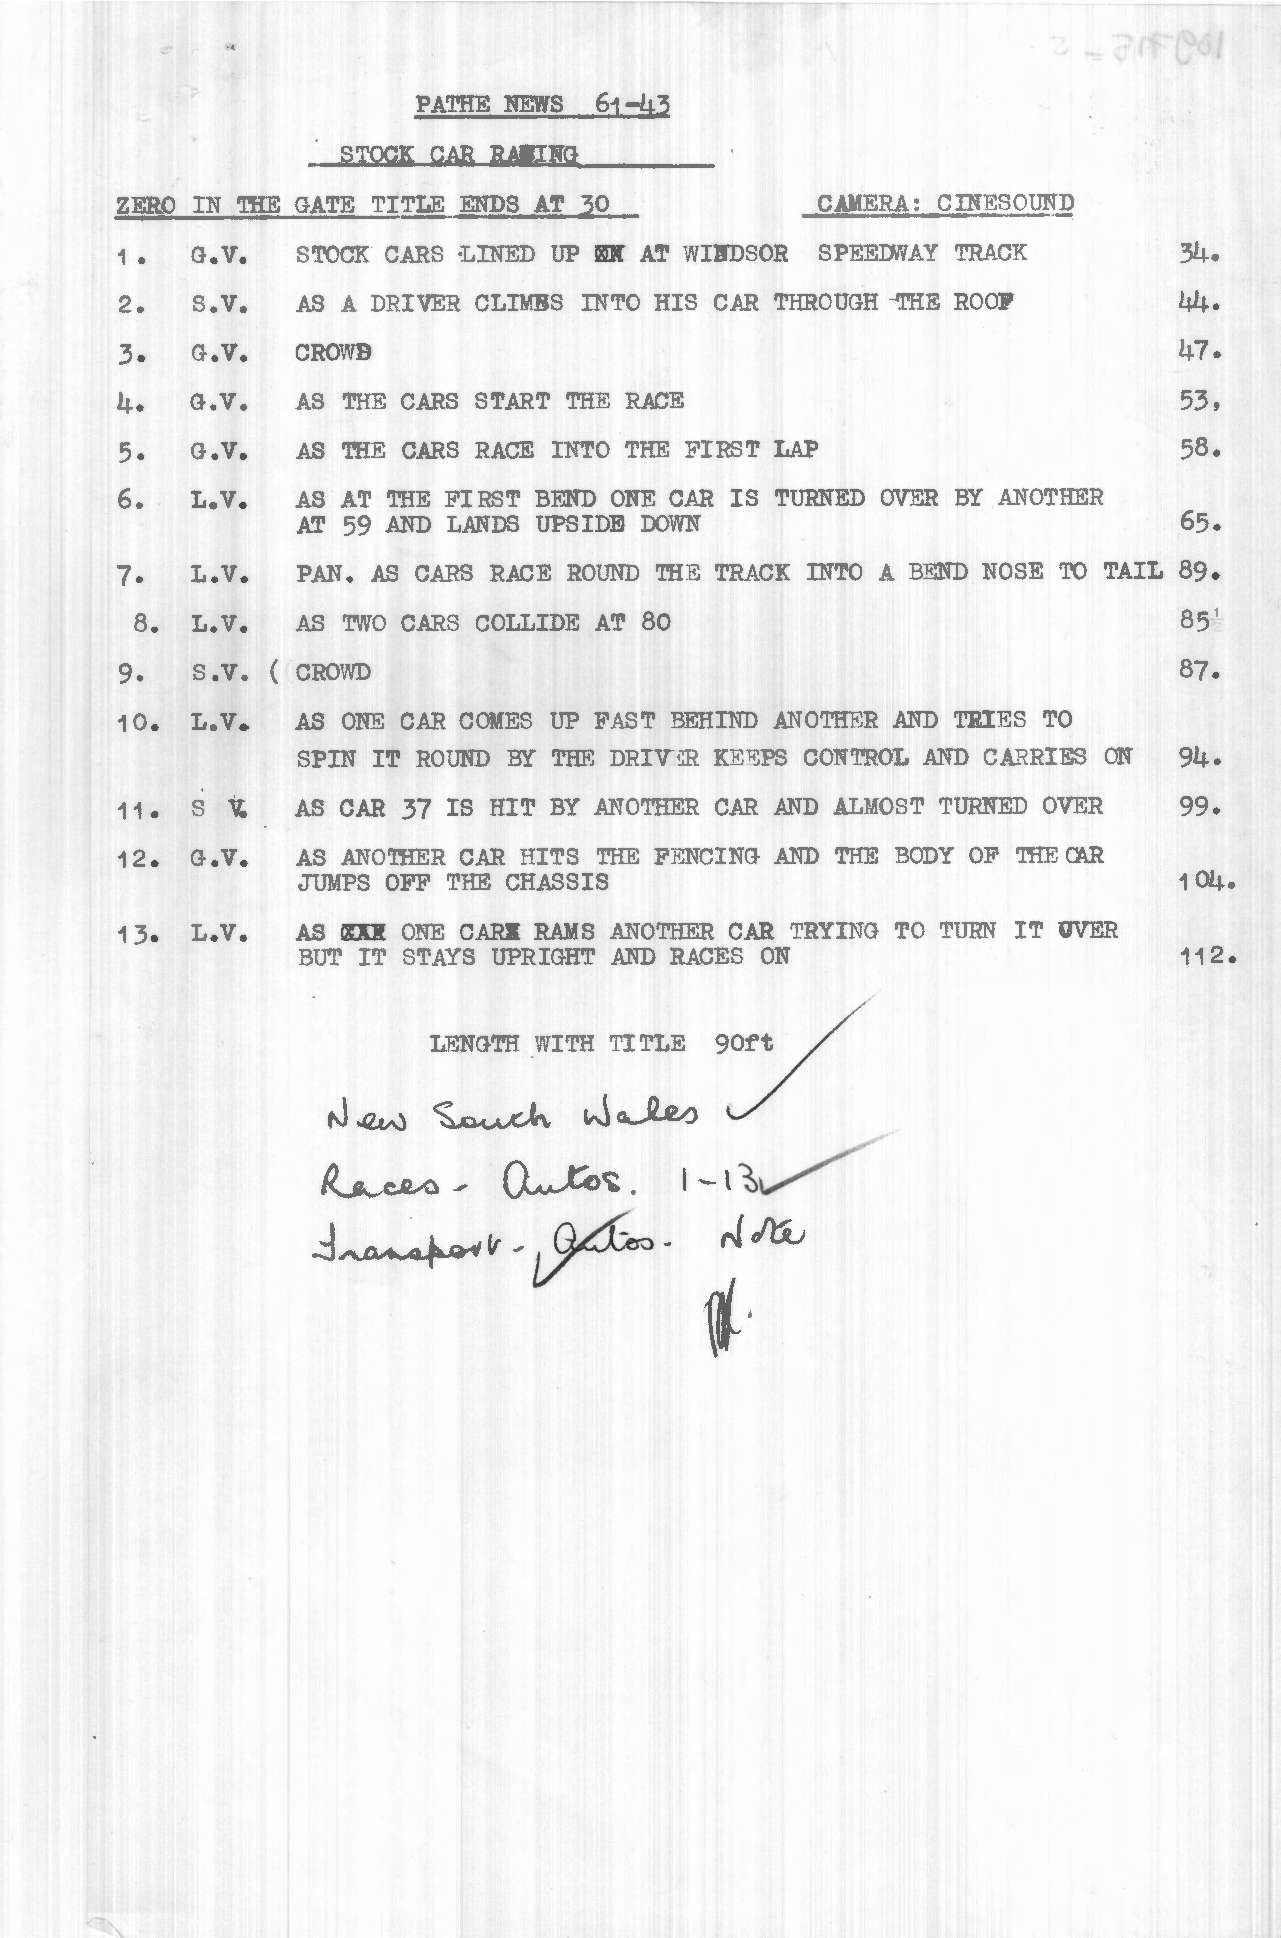 PATHE NEWS 61-43
STOCK CAR RACING
ZERO IN THE GATE TITLE ENDS AT 30 CAMERA: CINESOUND
1. G.V. STOCK CARS LINED UP AT WINDSOR SPEEDWAY TRACK 34.
2. S.V. AS A DRIVER CLIMBS INTO HIS CAR THROUGH THE ROOF 44.
3. G.V. CROWD 47.
4. G.V. AS THE CARS START THE RACE 53,
5. G.V. AS THE CARS RACE INTO THE FIRST LAP 58.
6. L.V. AS AT THE FIRST BEND ONE CAR IS TURNED OVER BY ANOTHER
AT 59 AND LANDS UPSIDE DOWN 65.
7. L.V. PAN. AS CARS RACE ROUND THE TRACK INTO A BEND NOSE TO TAIL 89.
8. L.V. AS TWO CARS COLLIDE AT 80 85½
9. S.V. ( CROWD 87.
10. L.V. AS ONE CAR COMES UP FAST BEHIND ANOTHER AND TRIES TO
SPIN IT ROUND BY THE DRIVER KEEPS CONTROL AND CARRIES ON 94.
11. S V. AS CAR 37 IS HIT BY ANOTHER CAR AND ALMOST TURNED OVER 99.
12. G.V. AS ANOTHER CAR HITS THE FENCING AND THE BODY OF THE CAR
JUMPS OFF THE CHASSIS 104.
13. L.V. AS ONE CAR RAMS ANOTHER CAR TRYING TO TURN IT OVER
BUT IT STAYS UPRIGHT AND RACES ON 112.
LENGTH WITH TITLE 90ft
New South Wales
Races - Autos. 1-13
Transport - Autos. Note